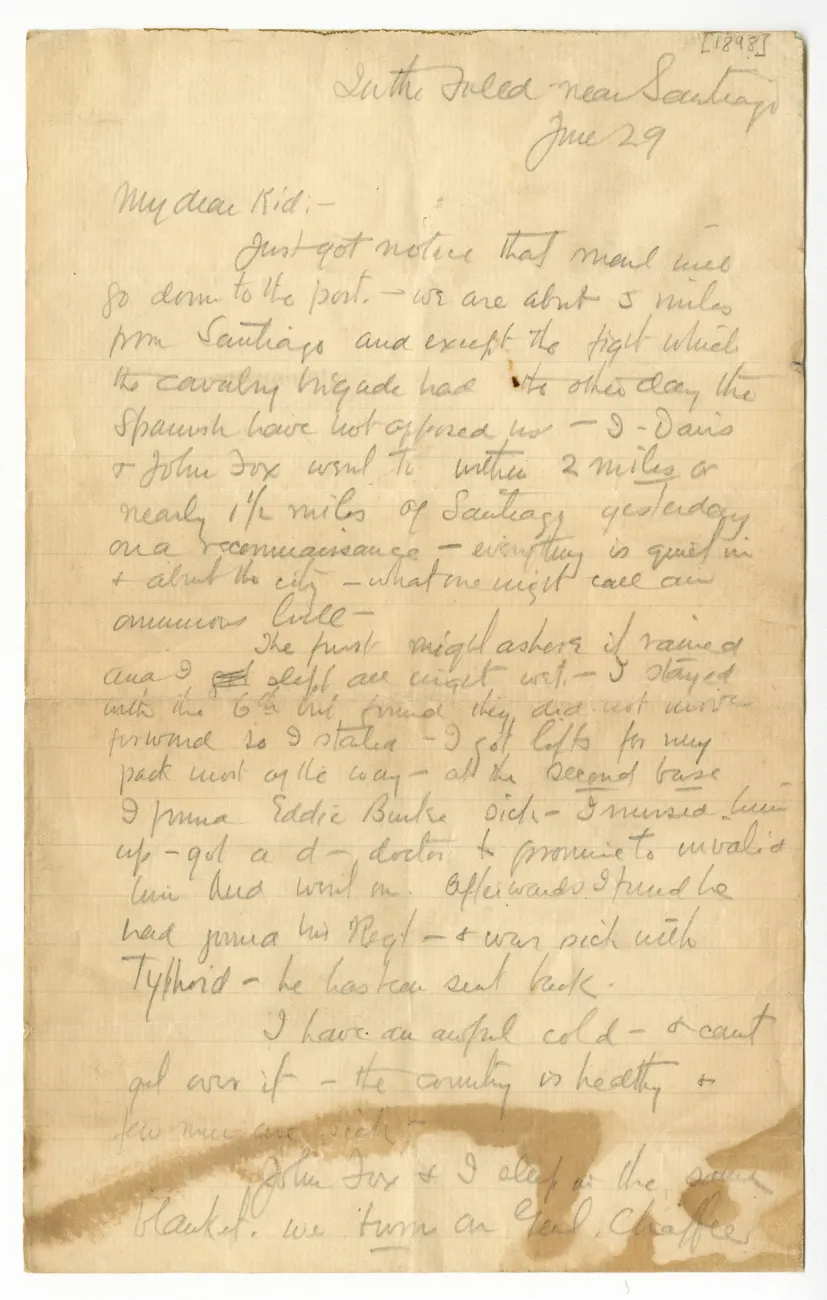 [1898]
In the Field near Santiago
June 29
My dear Kid:-
Just got notice that mail will
go down to the port. - we are about 5 miles
from Santiago and except the fight which
the cavalry brigade had the other day the
Spanish have not opposed us - I - Davis
& John Fox went to within 2 miles or
nearly 1 1/2 miles of Santiago yesterday
on a reconnaissance - everything is quiet in
& about the city - what one might call an
ominous lull -
The first night ashore it rained
and I slept all night wet. - I stayed
with the 6th but found they did not move
forward so I - I got lifts for my
pack most of the way - at the second base
I found Eddie Burke sick - I nursed him
up - got a d- doctor to promise to invalid
him and went on. Afterwards I found he
had joined his Regt - & was sick with
Typhoid - he has been sent back.
I have an awful cold - & cant
get over it - the country is healthy &
few men are sick -
John Fox & I sleep in the same
blanket. we turn on Genl. Chaffee